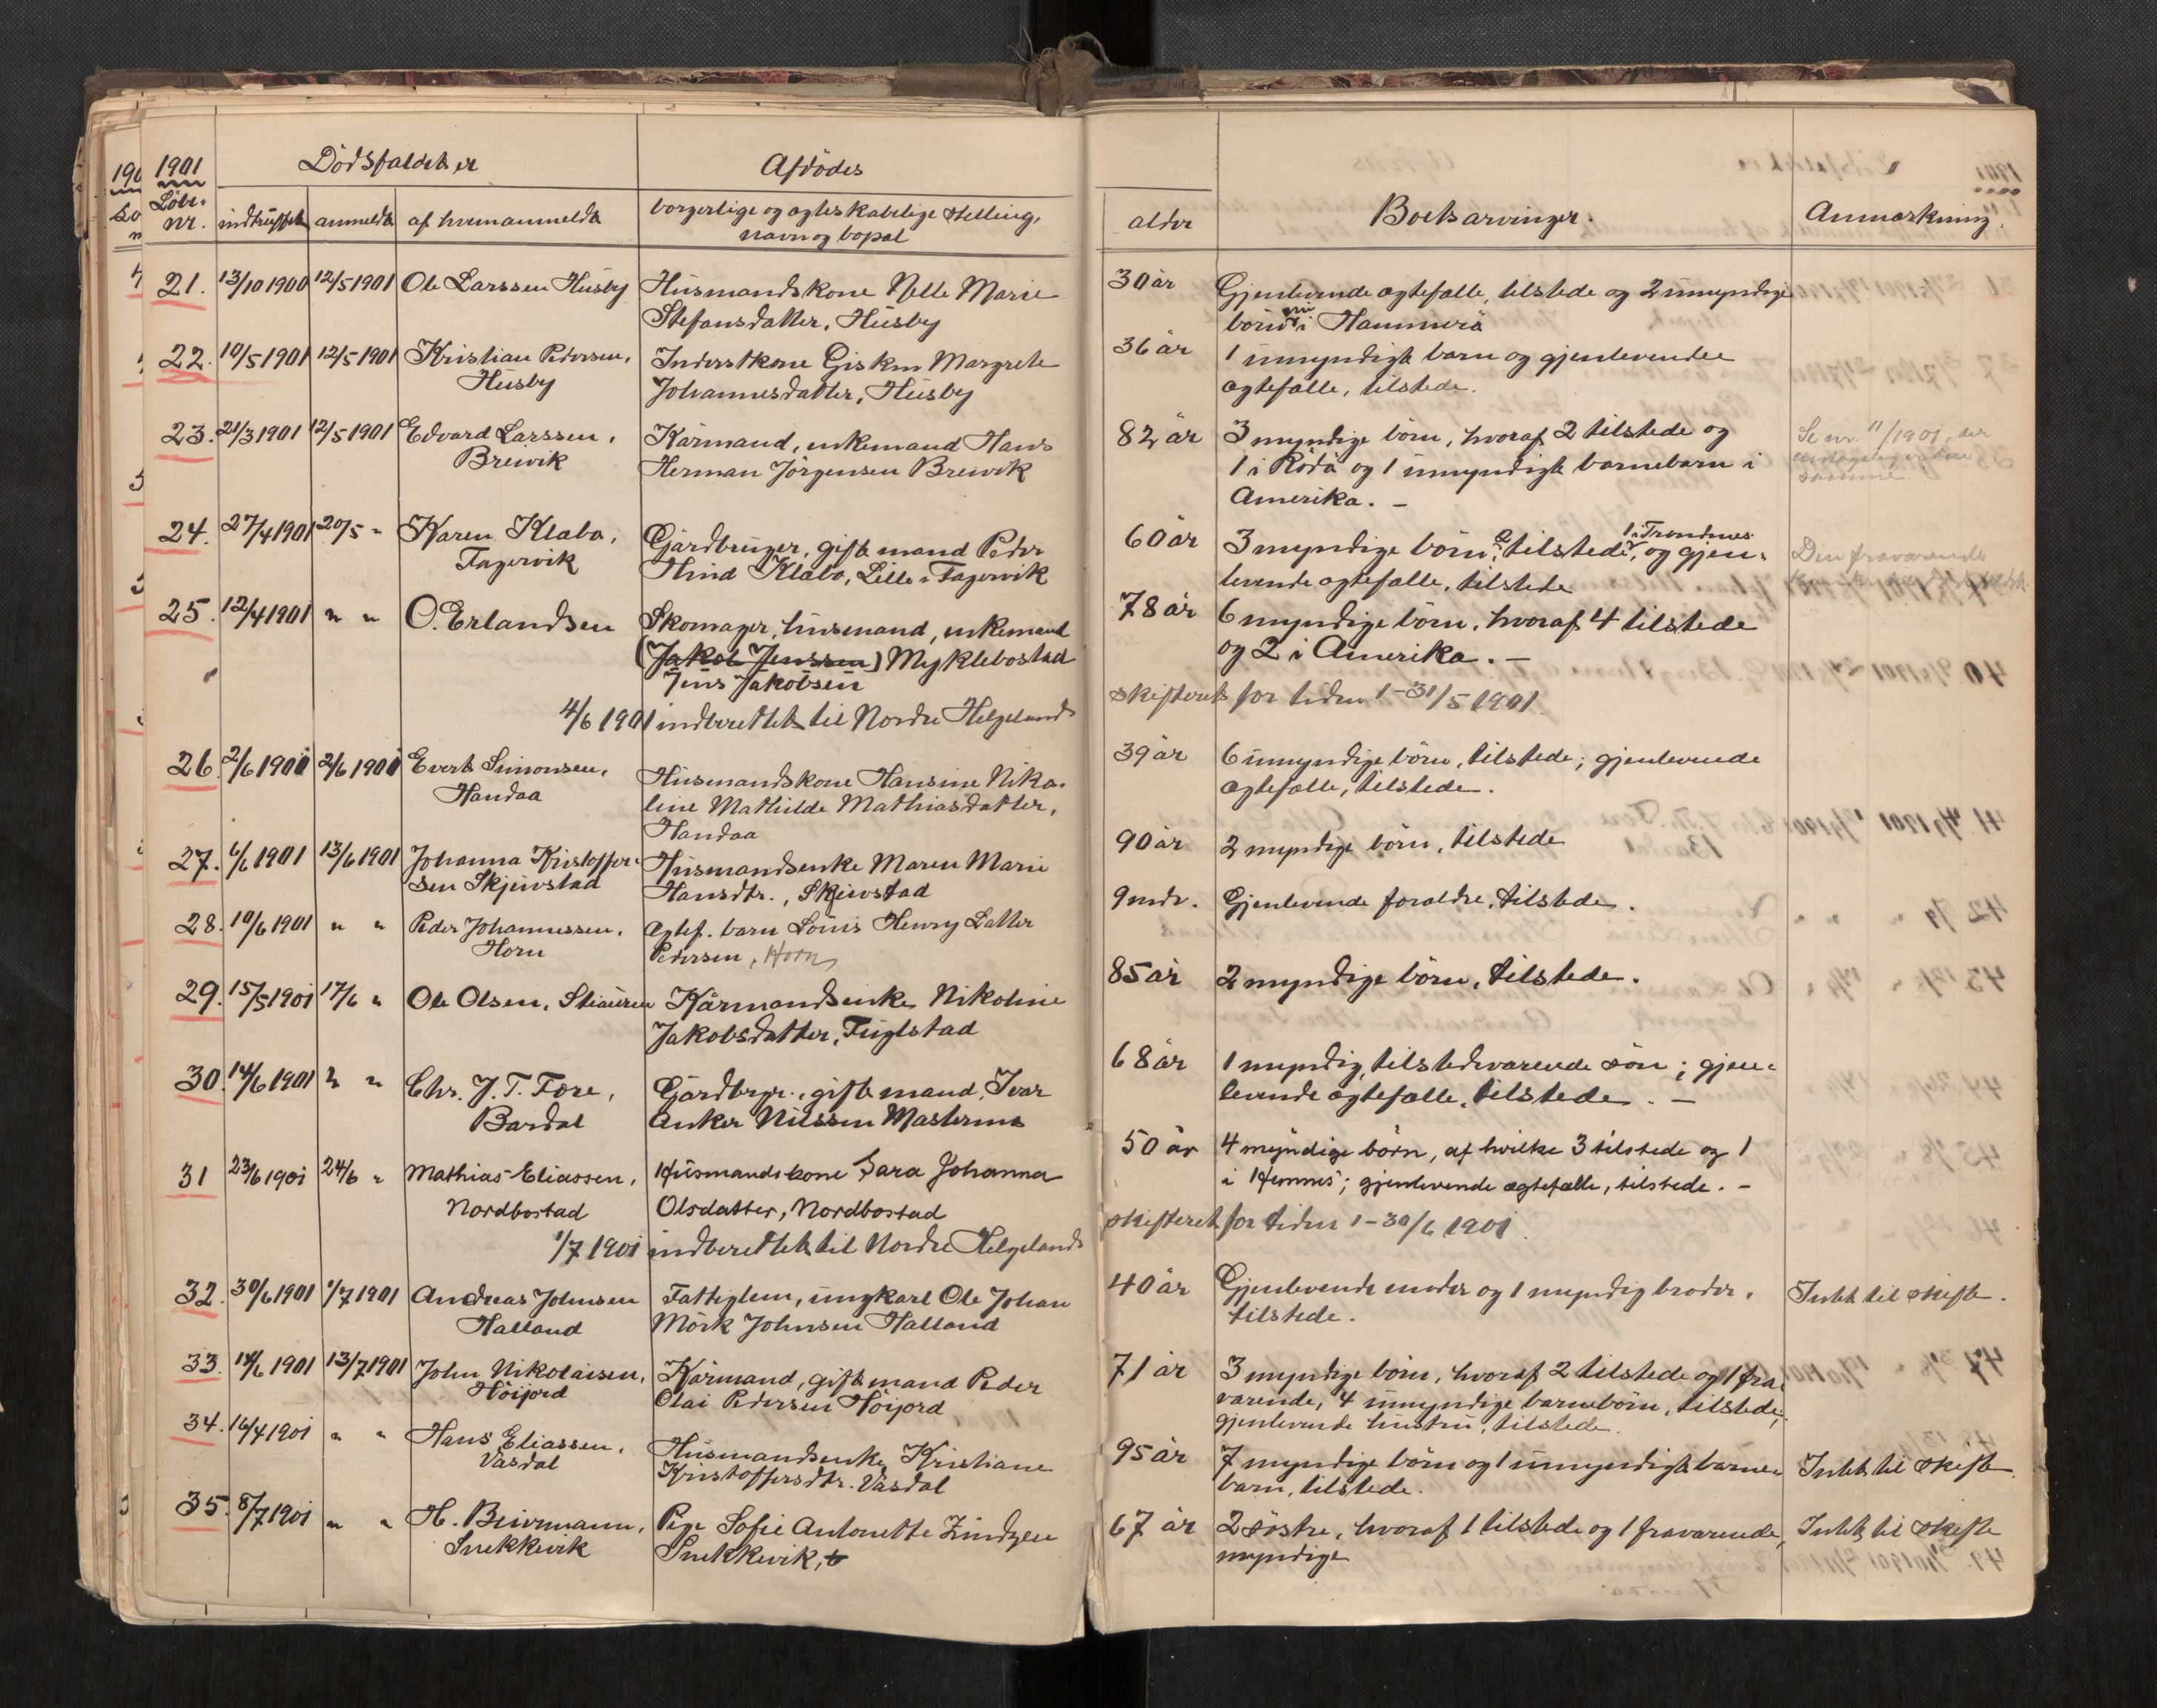 1901
Dödsfaldet er
Afdödes
Löbe-
nr.
indtruffet
anmeldt
af hvem anmeldt
borgerlige og ægteskabelige stilling,
navn og bopæl
alder
Boets arvinger.
Anmærkning.
21. 13/10 1900 12/5 1901 Ole Larssen Husby Husmandskone Nelle Marie
Stefansdatter, Husby
30 år Gjenlevende ægtefælle, tilstede og 2 umyndige
börn i Hammerö
22. 10/5 1901 12/5 1901 Kristian Pedersen, Inderstkone Gisken Margrete
Husby Johannesdatter, Husby
36 år 1 umyndigt barn og gjenlevende
ægtefælle, tilstede.
23. 21/3 1901 12/5 1901 Edvard Larssen, Kårmand, enkemand Hans
Breivik Herman Jörgensen Breivik
82 år 3 myndige börn, hvoraf 2 tilstede og
1 i Rödö og 1 umyndigt barnebarn i
Amerika. —
Se nr. 11/1901, der
samme.
24. 27/4 1901 20/5 " Karen Klæbo, Gårdbruger, gift mand Peder
Fagervik Hind Klæbo, Lille-Fagervik
60 år 3 myndige börn, 2 tilstede, 1 i Trondenes og gjen-
levende ægtefælle, tilstede
Den fraværende
25. 12/4 1901 " " O. Erlandsen Skomager, husmand, enkemand
(Jakob Jenssen) Myklebostad
Jens Jakobsen
78 år 6 myndige börn, hvoraf 4 tilstede
og 2 i Amerika. —
4/6 1901 indberettet til Nordre Helgelands skifteret for tiden 1-31/5 1901.
26 2/6 1901 2/6 1901 Evert Simonsen, Husmandskone Hansine Niko-
Handaa line Mathilde Mathiasdatter,
Handaa
39 år 6 umyndige börn, tilstede; gjenlevende
ægtefælle, tilstede.
27. 6/6 1901 13/6 1901 Johanna Kristoffer- Husmandsenke Maren Marie
sen Skjeivstad Hansdtr., Skjeivstad
90 år 2 myndige börn, tilstede
28. 10/6 1901 " " Peder Johannessen, Ægtef. barn Louis Henry Latter
Horn Pedersen, Horn
9 mdr. Gjenlevende forældre, tilstede.
29. 15/5 1901 17/6 " Ole Olsen, Stiauren Kårmandsenke Nikoline
Jakobsdatter, Fuglstad
85 år 2 myndige börn, tilstede.
30. 14/6 1901 " " Chr. J. T. Fore, Gårdbrgr., gift mand, Ivar
Bardal Anker Nilssen Masternes
68 år 1 myndig, tilstedeværende sön; gjen-
levende ægtefælle, tilstede. —
31 23/6 1901 24/6 " Mathias Eliassen, Husmandskone Sara Johanna
Nordbostad Olsdatter, Nordbostad
50 år 4 myndige börn, af hvilke 3 tilstede og 1
i Hemnes; gjenlevende ægtefælle, tilstede. —
1/7 1901 indberettet til Nordre Helgelands skifteret for tiden 1-30/6 1901.
32. 30/6 1901 1/7 1901 Andreas Johnsen Fattiglem, ungkarl Ole Johan
Halland Mörk Johnsen Halland
40 år Gjenlevende moder og 1 myndig broder,
tilstede.
Intet til skifte.
33. 14/6 1901 13/7 1901 John Nikolaisen, Kårmand, gift mand Peder
Höijord Olai Pedersen Höijord
71 år 3 myndige börn, hvoraf 2 tilstede og 1 fra-
værende, 4 umyndige barnebörn, tilstede;
gjenlevende hustru, tilstede.
34. 16/4 1901 " " Hans Eliassen, Husmandsenke Kristiane
Vasdal Kristoffersdtr. Vasdal
95 år 7 myndige börn og 1 umyndigt barne-
barn, tilstede.
Intet til skifte.
35. 8/7 1901 " " H. Beiermann, Pige Sofie Antonette Zindgen
Snekkevik Snekkevik,
67 år 2 söstre, hvoraf 1 tilstede og 1 fraværende,
myndige
Intet til skifte